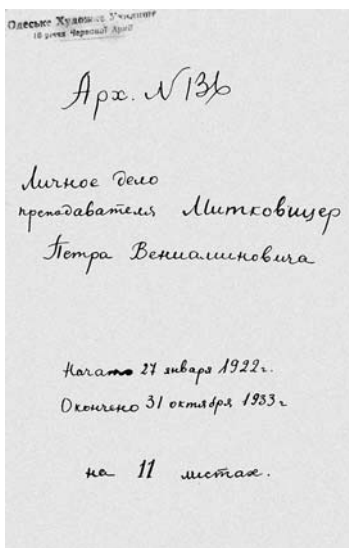 Одеське Художнє Училище
10 річчя Червоної Армії
Арх. № 136
Личное дело
преподавателя Митковицер
Петра Вениаминовича
Начато 27 января 1922г.
Окончено 31 октября 1933г
на 11 листах.